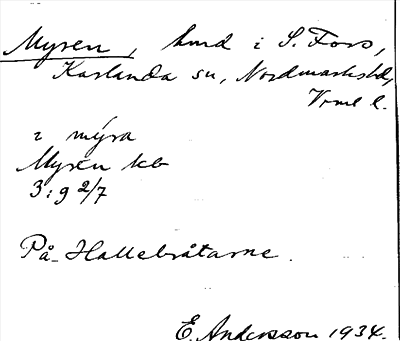 Myren, lund i S. Fors,
Karlanda sn, Nordmarks hd,
Vrml l.
i mýra
Myren kb
3:9 2/7
På Hallebråtarne.
E. Andersson 1934.